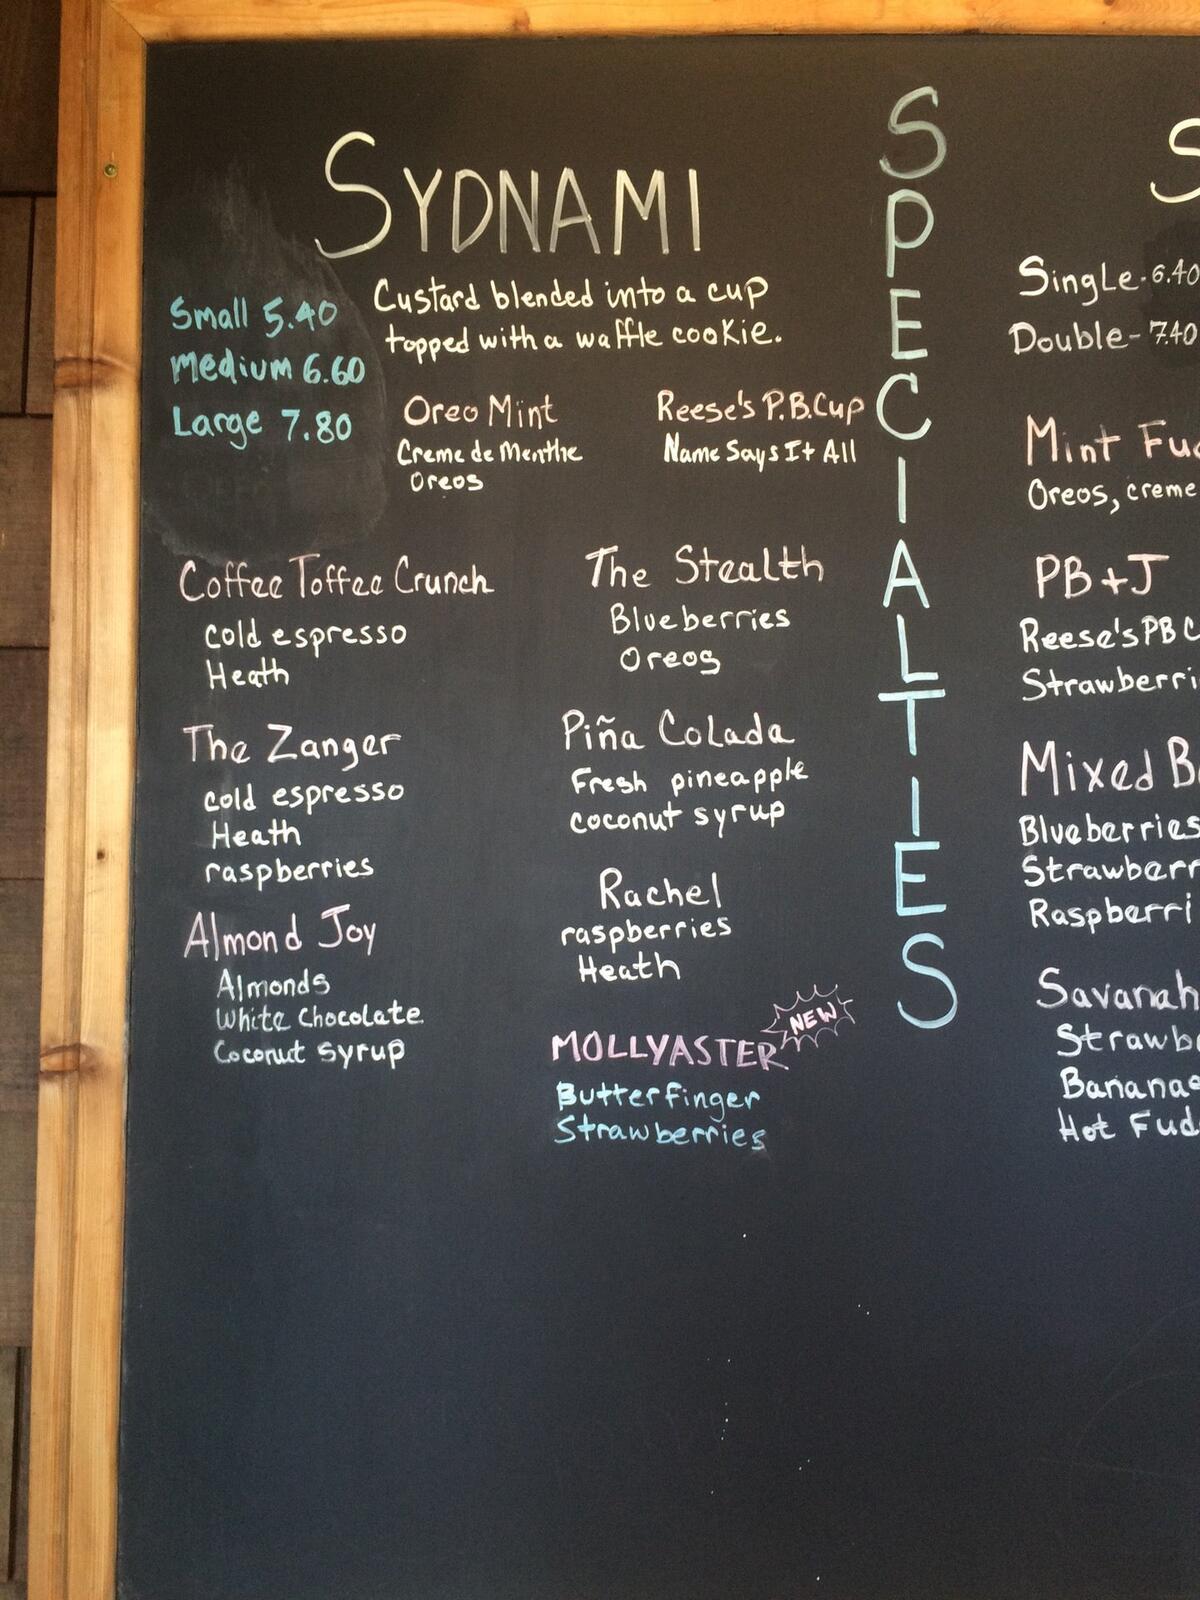 SYDNAMI
Small 5.40
Medium 6.60
Large 7.80
Custard blended into a cup
topped with a waffle cookie.
Oreo Mint
Creme de Menthe
Oreos
Reese's P.B.Cup
Name Says It All
Coffee Toffee Crunch
cold espresso
Heath
The Zanger
cold espresso
Heath
raspberries
Almond Joy
Almonds
White Chocolate
Coconut syrup
The Stealth
Blueberries
Oreos
Piña Colada
Fresh pineapple
coconut syrup
Rachel
raspberries
Heath
MOLLYASTER
NEW
Butterfinger
Strawberries
SPECIALTIES
S
Single-6.40
Double-7.40
Mint Fu
Oreos, creme
PB+J
Reese's PB C
Strawberri
Mixed B
Blueberries
Strawberr
Raspberri
Savanah
Strawb
Bananas
Hot Fud